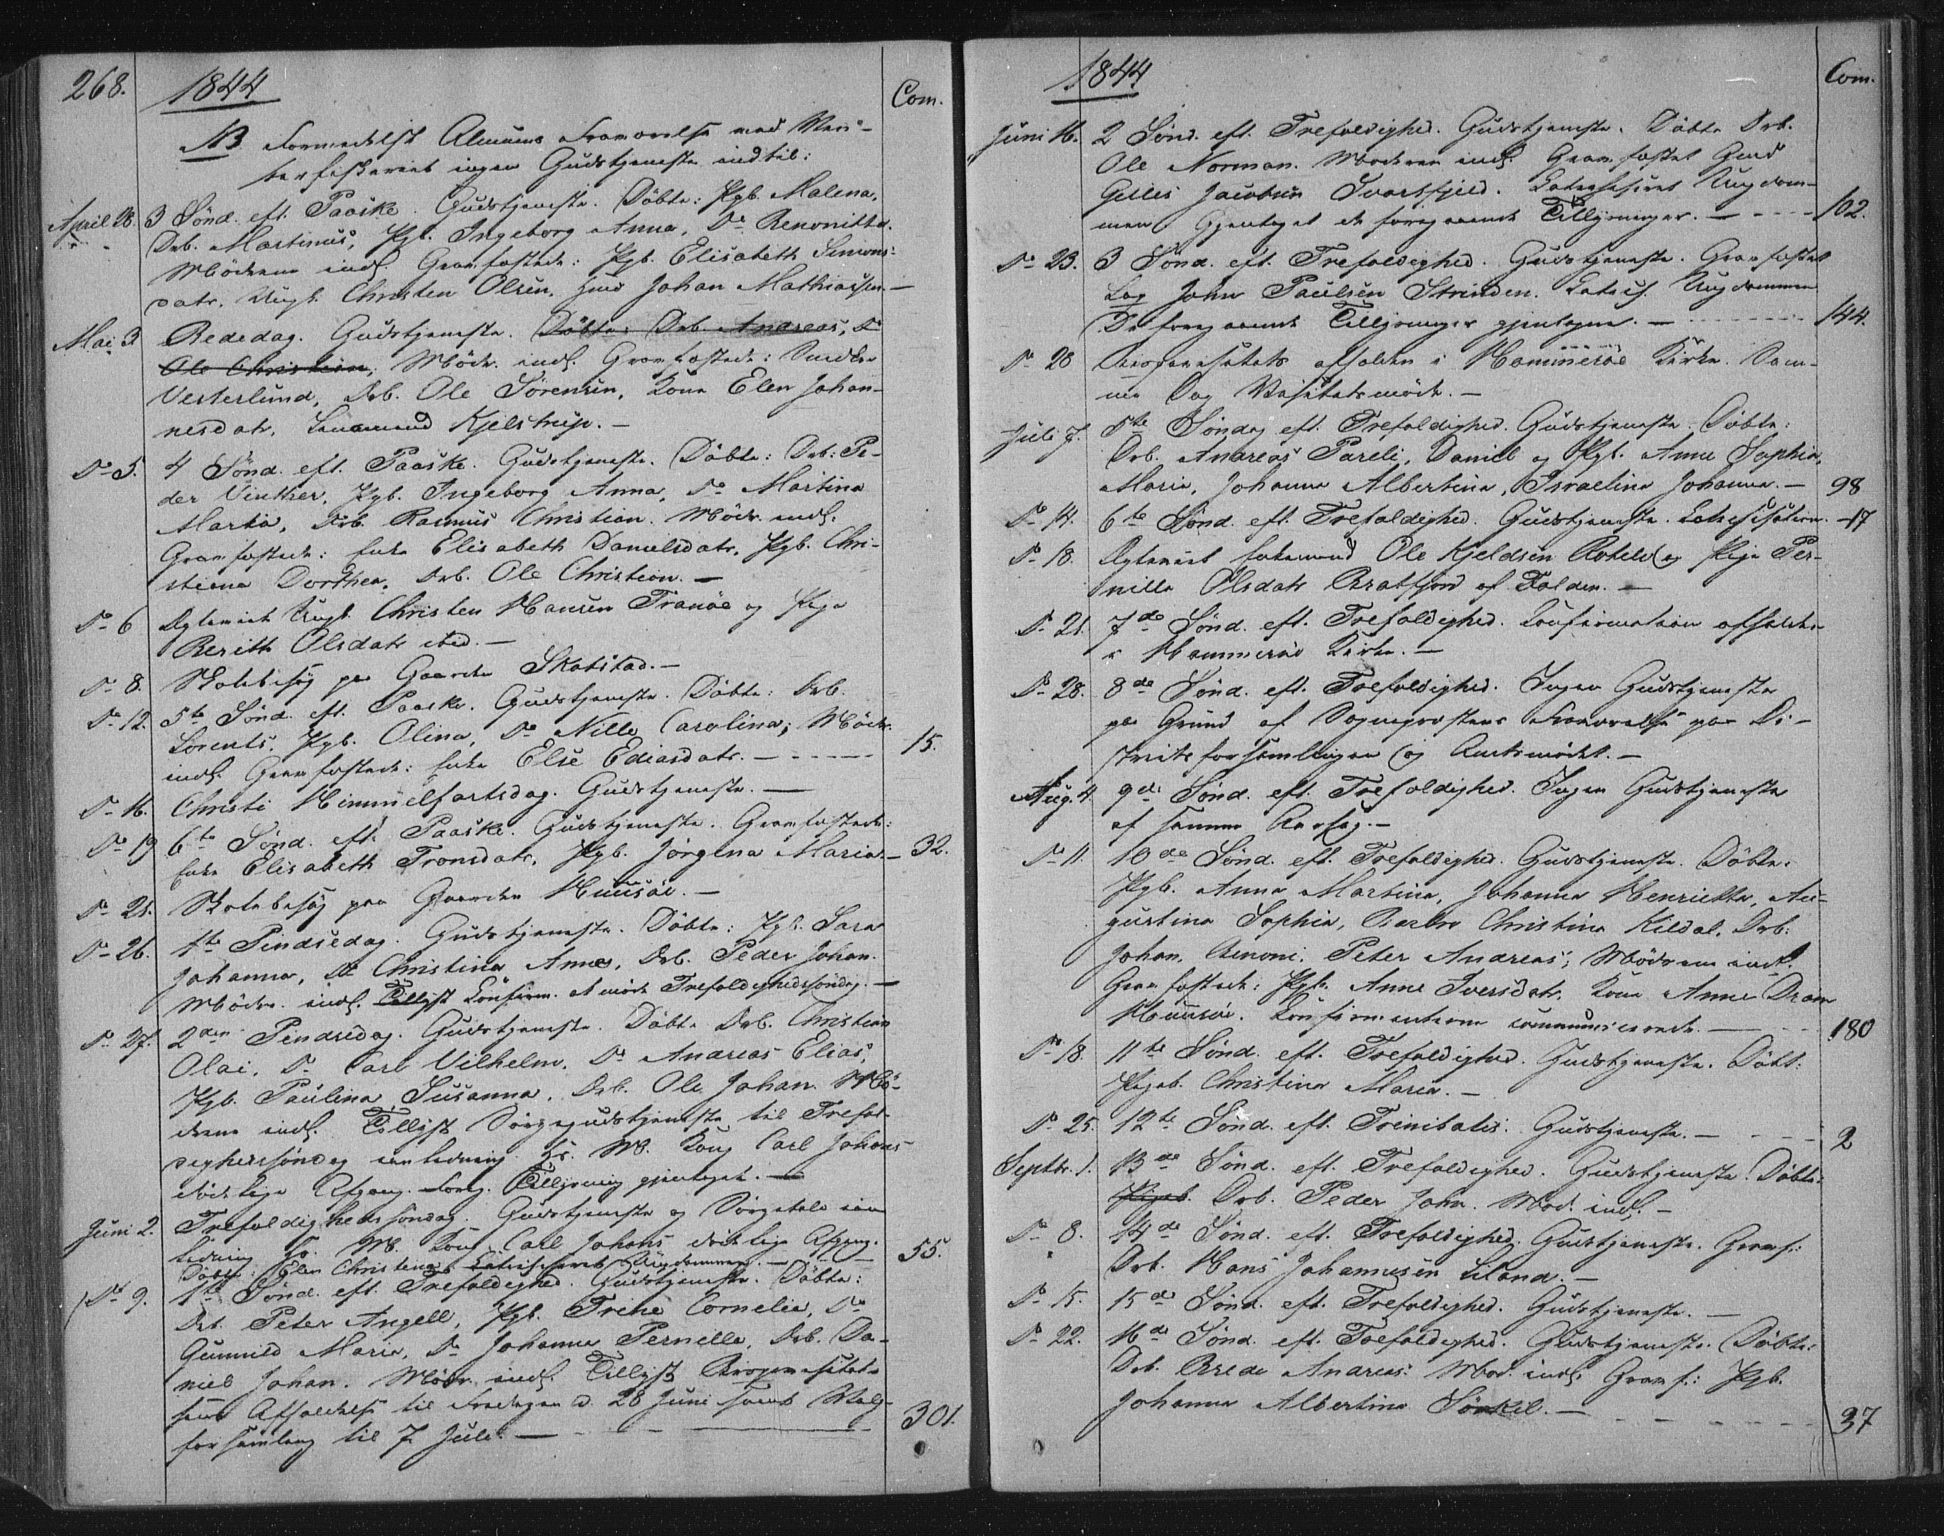 268.
1844
Com.
NB Formedelst Almuens Fraværelse ved Vin-
terfiskeriet ingen Gudstjeneste indtil:
April 28. 3 Sønd. eft. Paaske. Gudstjeneste. Döbte: Pgb. Malena,
Drb. Martinus, Pgb. Ingeborg Anna, Do
Mödrene indl. Gravfæstede: Pgb. Elisabeth Simons-
datr. Ungk. Christen Olsen, Huus Johan Mathiassen. —
Mai 3 Bededag. Gudstjeneste. Döbte: Drb. Andreas, Do
Ole Christian, Mödr. indl. Gravfæstede:
Vesterlund, Drb. Ole Sörensen, Kone Elen Johan-
nesdatr, Lensmand Kjelstrup. —
Do 5. 4 Sönd. eft. Paaske. Gudstjeneste. Döbte: Drb: Pe-
der Vinther, Pgb. Ingeborg Anna, Do Martina
Maria, Drb. Rasmus Christian. Mödr. indl.
Gravfæstede: Enke Elisabeth Danielsdatr, Pgb. Chri-
stiane Dorthea, Drb. Ole Christian. —
Do 6 Ægteviet Ungk. Christen Hansen Tranöe og Pige
Berith Olsdatr ibid. —
Do 8. Skolebesög paa Gaarden Skotstad. —
Do 12. 5te Sönd. eft. Paaske. Gudstjeneste. Döbte: Drb.
Lorents, Pgb. Olina, Do Nille Carolina; Mödr.
indl. Gravfæstede: Enke Else Ediasdatr. — 15.
Do 16. Christi Himmelfartsdag. Gudstjeneste. —
Do 19 6te Sönd. eft. Paaske. Gudstjeneste. Gravfæstede:
Enke Elisabeth Tronsdatr, Pgb. Jörgena Maria — 32.
Do 21. Skolebesög paa Gaarden Huusöe. —
Do 26. 1ste Pindsedag. Gudstjeneste. Döbte: Pgb. Sara
Johanna, Do Christina Anna, Drb. Peder Johan.
Mödr. indl. Tillyst Confirm. at möde Trefoldighedssöndag. —
Do 27. 2den Pindsedag. Gudstjeneste. Döbte Drb. Christian
Olai, Do Carl Vilhelm, Do Andreas Elias,
Pgb. Paulina Susanna, Drb. Ole Johan. Mö-
drene indl. Tillyst Sörgegudstjeneste til Trefol-
dighedssöndag i anledning Hs. M. Kong Carl Johans
dödelige Afgang. Forrig Tillysning gjentaget. —
Juni 2. Trefoldighedssöndag. Gudstjeneste og Sörgetale i an-
ledning Hs. M. Kong Carl Johans dödelige Afgang.
Döbte: Elen Christence. Catechiseret Ungdommen. — 55.
Do 9. 1ste Sönd. eft. Trefoldighed. Gudstjeneste. Döbte:
Drb. Peter Angell, Pgb. Trine Cornelia, Do
Gunnild Maria, Do Johanna Pernella, Drb. Da-
niel Johan. Mödr. indl. Tillyst Bispevisitats
samt Afholdelse til Fredagen d. 28 Juni samt Valg-
forsamling til 7 Juli. — 301.
1844
Com.
Juni 16. 2 Sönd. eft. Trefoldighed. Gudstjeneste. Döbte Drb.
Ole Norman. Moderen indl. Gravfæstet Huus
Gilles Jacobsen Svartfjeld. Catechiseret Ungdom-
men. Gjentaget de foregaaende Tillysninger. — 102.
Do 23. 3 Sönd. eft. Trefoldighed. Gudstjeneste. Gravfæstet
Log John Paulsen Strinden. Catech. Ungdommen
De foregaaende Tillysninger gjentagne. — 144.
Do 28 Bispevisitats afholden i Hammeröe Kirke. Sam-
me Dag Visitatsmöde. —
Juli 7. 5te Söndag eft. Trefoldighed. Gudstjeneste. Döbte:
Drb. Andreas Pareli, Daniel og Pgb. Anne Sophia,
Maria, Johanna Albertina, Israelina Johanna. — 98
Do 14. 6te Sönd. eft. Trefoldighed. Gudstjeneste. Catechisation. — 17
Do 18. Ægteviet Enkemand Ole Kjeldsen Rotvld og Pige Per-
nille Olsdatr Bratfjord af Folden. —
Do 21. 7de Sönd. eft. Trefoldighed. Confirmation afholden
i Hammeröe Kirke. —
Do 28. 8de Sönd. eft. Trefoldighed. Ingen Gudstjeneste
paa Grund af Sognepræstens Fraværelse paa Di-
strictsforsamlingen og Amtsmödet. —
Aug. 4. 9de Sönd. eft. Trefoldighed. Ingen Gudstjeneste
af samme Aarsag. —
Do 11. 10de Sönd. eft. Trefoldighed. Gudstjeneste. Döbte:
Pgb. Anna Martina, Johanna Henrietta, Au-
gustina Sophia, Christina Kildal, Drb.
Johan Benoni, Peter Andreas; Mödrene indl.
Gravfæstede: Pgb. Anne Iversdatr, Kone Anne
Huusöe. Confirmanterne communicerede. — 180
Do 18. 11te Sönd. eft. Trefoldighed. Gudstjeneste. Döbt:
Pgeb. Christina Maria. —
Do 25. 12te Sönd. eft. Trinitatis. Gudstjeneste. — 2
Septbr. 1. 13de Sönd. eft. Trefoldighed. Gudstjeneste. Döbte:
Pigeb. Drb. Peder John. Mod. indl. —
Do 8. 14de Sönd. eft. Trefoldighed. Gudstjeneste. Gravf.:
Drb. Hans Johannesen Liland. —
Do 15. 15de Sönd. eft. Trefoldighed. Gudstjeneste. —
Do 22. 16de Sönd. eft. Trefoldighed. Gudstjeneste. Döbte:
Drb. Brede Andreas. Mod. indl. Gravf.: Pgb.
Johanna Albertina Sörkil. — 37